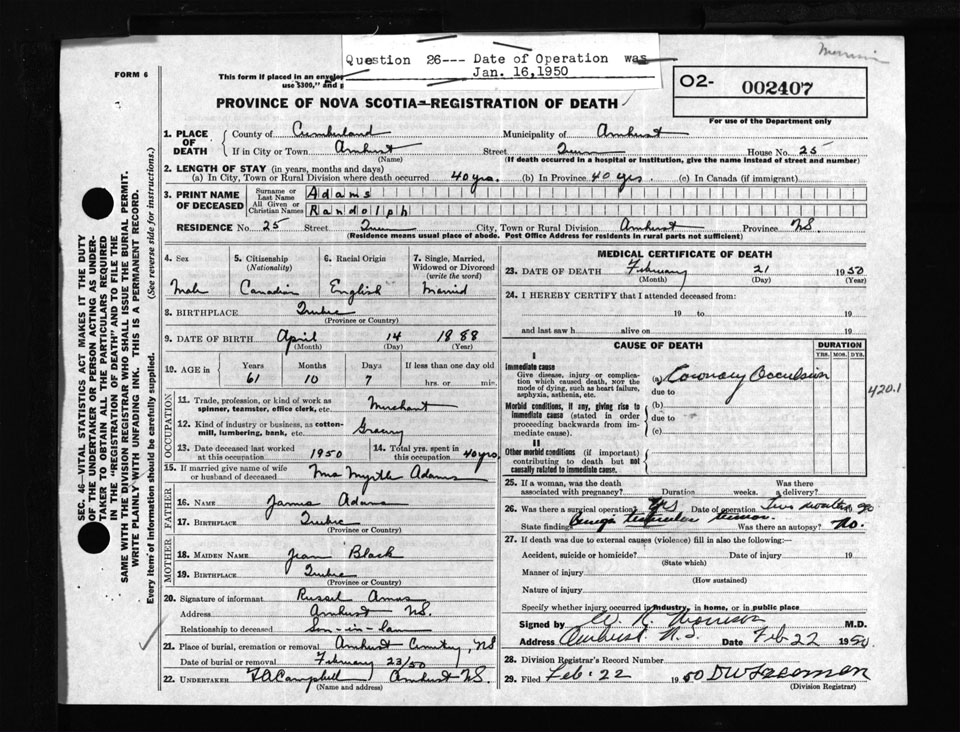 Question 26--- Date of Operation was
Jan. 16,1950
FORM 6
This form if placed in an envelope
use $300," and
PROVINCE OF NOVA SCOTIA—REGISTRATION OF DEATH
O2- 002407
For use of the Department only
SEC. 46 VITAL STATISTICS ACT MAKES IT THE DUTY
OF THE UNDERTAKER OR PERSON ACTING AS UNDER-
TAKER TO OBTAIN ALL THE PARTICULARS REQUIRED
IN THE "REGISTRATION OF DEATH" AND TO FILE THE
SAME WITH THE DIVISION REGISTRAR WHO SHALL ISSUE THE BURIAL PERMIT.
WRITE PLAINLY WITH UNFADING INK. THIS IS A PERMANENT RECORD.
Every item of information should be carefully supplied. (See reverse side for instructions.)
1. PLACE OF DEATH County of Cumberland Municipality of Amherst
If in City or Town Amherst Street Queen House No. 25
(Name) (If death occurred in a hospital or institution, give the name instead of street and number)
2. LENGTH OF STAY (in years, months and days)
(a) In City, Town or Rural Division where death occurred 40 yrs. (b) In Province 40 yrs. (c) In Canada (if immigrant)
3. PRINT NAME OF DECEASED Surname or Last Name Adams
All Given or Christian Names Randolph
RESIDENCE No. 25 Street Queen City, Town or Rural Division Amherst Province NS
(Residence means usual place of abode. Post Office Address for residents in rural parts not sufficient)
4. Sex 5. Citizenship (Nationality) 6. Racial Origin 7. Single, Married, Widowed or Divorced (write the word)
Male Canadian English Married
8. BIRTHPLACE Quebec
(Province or Country)
9. DATE OF BIRTH April 14 1888
(Month) (Day) (Year)
10. AGE in Years Months Days If less than one day old
61 10 7 hrs. or min.
OCCUPATION
11. Trade, profession, or kind of work as spinner, teamster, office clerk, etc. Merchant
12. Kind of industry or business, as cotton-mill, lumbering, bank, etc. Grocery
13. Date deceased last worked at this occupation 1950 14. Total yrs. spent in this occupation 40 yrs.
15. If married give name of wife or husband of deceased Myrtle Adams
FATHER
16. NAME James Adams
17. BIRTHPLACE Quebec
(Province or Country)
MOTHER
18. MAIDEN NAME Jean Black
19. BIRTHPLACE Quebec
(Province or Country)
20. Signature of informant Russel Amos
Address Amherst NS.
Relationship to deceased Son-in-law
21. Place of burial, cremation or removal Amherst Cemetery, NS
Date of burial or removal February 23/50
22. UNDERTAKER Campbell Amherst NS.
(Name and address)
MEDICAL CERTIFICATE OF DEATH
23. DATE OF DEATH February 21 1950
(Month) (Day) (Year)
24. I HEREBY CERTIFY that I attended deceased from:
19 to 19
and last saw h alive on 19
CAUSE OF DEATH DURATION
YRS. MOS. DYS.
I
Immediate cause
Give disease, injury or complication which caused death, NOT the mode of dying, such as heart failure, asphyxia, asthenia, etc.
(a) Coronary Occlusion
due to
420.1
Morbid conditions, if any, giving rise to immediate cause (stated in order proceeding backwards from immediate cause).
(b)
due to
(c)
II
Other morbid conditions (if important) contributing to death but not causally related to immediate cause.
25. If a woman, was the death associated with pregnancy? Duration weeks. Was there a delivery?
26. Was there a surgical operation? Yes Date of operation two months ago
State findings Benign testicular tumor. Was there an autopsy? No.
27. If death was due to external causes (violence) fill in also the following:—
Accident, suicide or homicide? Date of injury 19
(State which)
Manner of injury
(How sustained)
Nature of injury
Specify whether injury occurred in industry, in home, or in public place
Signed by M.D.
Address Amherst N.S. Date Feb 22 1950
28. Division Registrar's Record Number
29. Filed Feb. 22 1950
(Division Registrar)